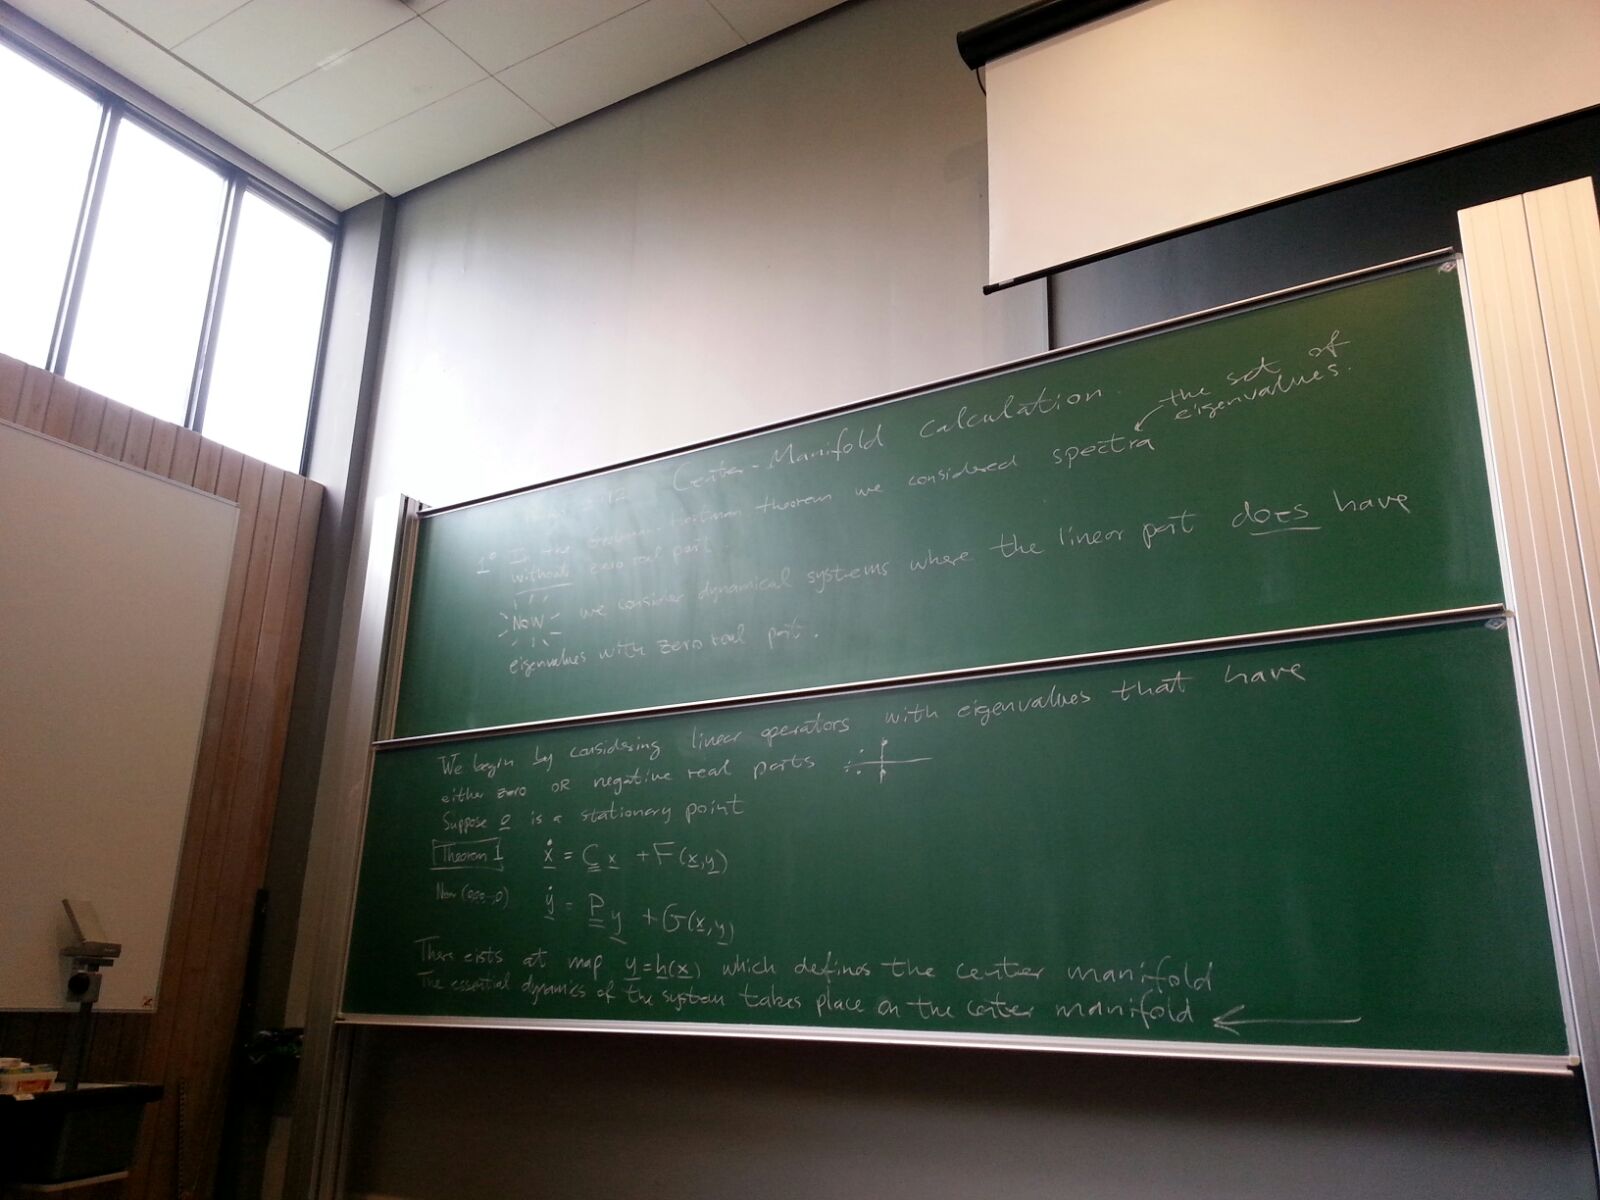 12 Center-Manifold calculation.
1° In the theorem we considered spectra
the set of
eigenvalues.
without zero real part.
NOW we consider dynamical systems where the linear part does have
eigenvalues with zero real part.
We begin by considering linear operators with eigenvalues that have
either zero OR negative real parts
Suppose 0 is a stationary point
Theorem 1 ẋ = C x + F(x,y)
ẏ = P y + G(x,y)
There exists at map y=h(x) which defines the center manifold
The essential dynamics of the system takes place on the center manifold ←